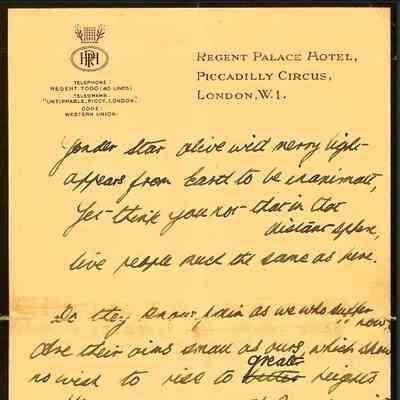 RPH
TELEPHONE:
REGENT 7000 (40 LINES)
TELEGRAMS:
"UNTIPPABLE, PICCY, LONDON."
CODE:
WESTERN UNION.
REGENT PALACE HOTEL,
PICCADILLY CIRCUS,
LONDON, W.1.
Yonder star alive with merry light
appears from Earth to be inanimate,
Yet think you not that in that
distant sphere,
live people much the same as here.
Do they know pain as we who suffer
now?
Are their aims small as ours, which show
greater
no wish to rise to better heights